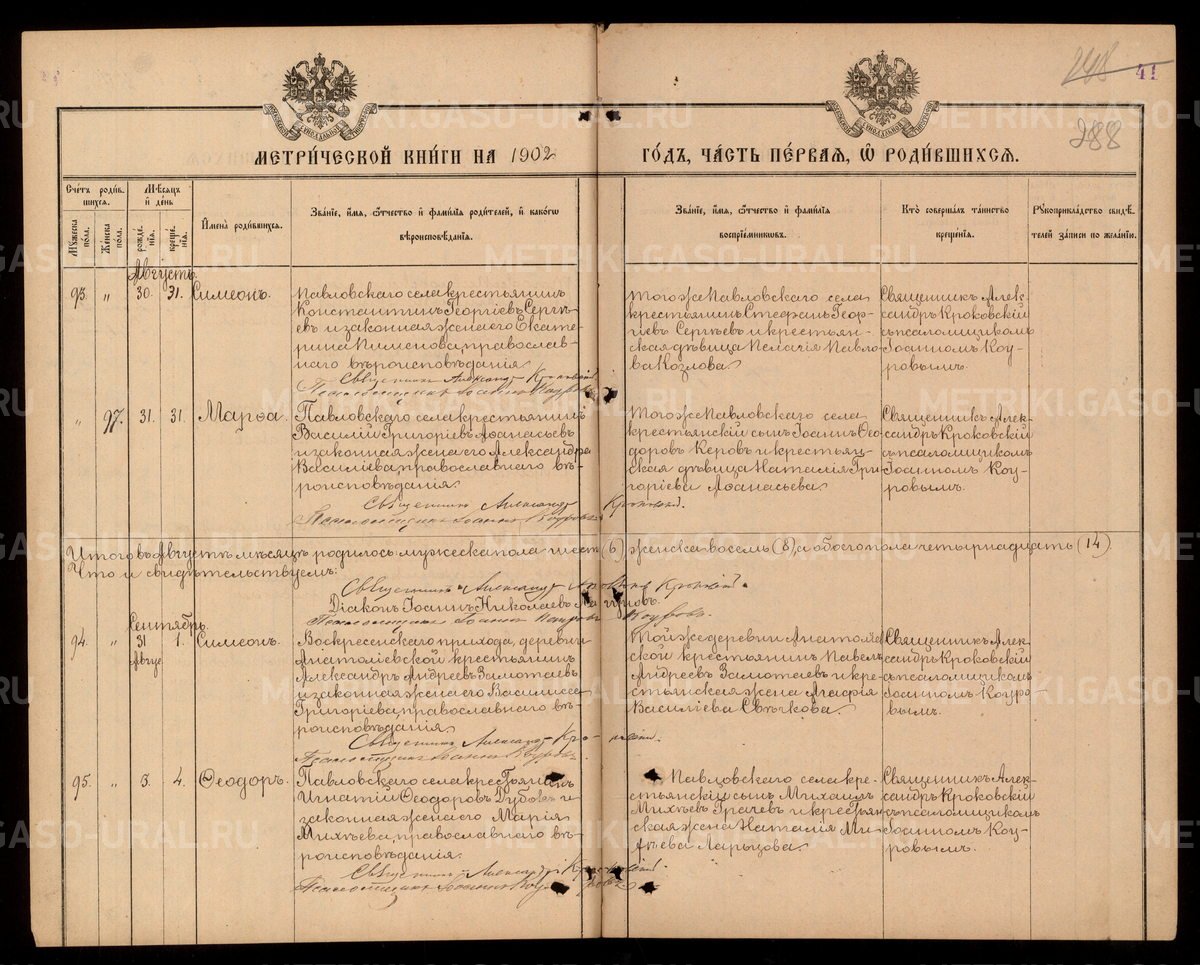 248 41
288
МЕТРИ́ЧЕСКОЙ КНИ́ГИ НА 1902 ГО́ДЪ, ЧА́СТЬ ПЕ́РВАѦ, Ѡ РОДИ́ВШИХСѦ.
Сче́тъ роди́в
шихсѧ.
Мѣ́сѧцъ
и҆ де́нь
Мꙋ́жеска
пола.
Же́нска
пола.
рожде́
нїѧ.
креще́
нїѧ.
И҆мена̀ роди́вшихсѧ.
Зва́нїе, и҆́мѧ, ѻ҆́тчество и҆ фами́лїѧ роди́телей, и҆ како́гѡ
вѣроисповѣ́данїѧ.
Зва́нїе, и҆́мѧ, ѻ҆́тчество и҆ фами́лїѧ
воспрїе́мниковъ.
Кто̀ соверша́лъ та́инство
креще́нїѧ.
Рꙋкоприкла́дство свидѣ́
телей за́писи по жела́нїю.
Августъ.
93. " 30. 31. Симеонъ.
Павловскаго села крестьянинъ
Константинъ Георгіевъ Сергѣ-
евъ и законная жена его Екате-
рина Пименова, православ-
наго вѣроисповѣданія.
Священникъ Александръ Кроковскій
Псаломщикъ Іоаннъ Коуровъ
Того же Павловскаго села
крестьянинъ Стефанъ Геор-
гіевъ Сергѣевъ и крестьян-
ская дѣвица Пелагія Павло-
ва Козлова.
Священникъ Алек-
сандръ Кроковскій
съ псаломщикомъ
Іоанномъ Коу-
ровымъ.
" 97. 31. 31 Марѳа.
Павловскаго села крестьянинъ
Василій Григоріевъ Аѳанасьевъ
и законная жена его Александра
Василіева, православнаго вѣ-
роисповѣданія.
Священникъ Александръ Кроковскій.
Псаломщикъ Іоаннъ Коуровъ
Того же Павловскаго села
крестьянскій сынъ Іоаннъ Ѳео-
доровъ Керовъ и крестьян-
ская дѣвица Наталія Гри-
горіева Аѳанасьева.
Священникъ Алек-
сандръ Кроковскій
съ псаломщикомъ
Іоанномъ Коу-
ровымъ.
Итого въ Августѣ мѣсяцѣ родилось мужеска пола шесть (6) женска восемь (8), а обоего пола четырнадцать (14)
Что и свидѣтельствуемъ:
Священникъ Александръ Кроковскій.
Діаконъ Іоаннъ Николаевъ
Псаломщикъ Іоаннъ Коуровъ.
Сентябрь.
94. " 31 Авгус. 1. Симеонъ.
Воскресенскаго прихода, деревни
Анатоліевской крестьянинъ
Александръ Андреевъ Замотаевъ
и законная жена его Василисса
Григоріева, православнаго вѣ-
роисповѣданія.
Священникъ Александръ Кроковскій.
Псаломщикъ Іоаннъ Коуровъ.
Той же деревни Анатоліев-
ской крестьянинъ Павелъ
Андреевъ Замотаевъ и кре-
стьянская жена Агафія
Василіева Свѣчкова.
Священникъ Алек-
сандръ Кроковскій
съ псаломщикомъ
Іоанномъ Коуро-
вымъ.
95. " 3. 4. Ѳеодоръ.
Павловскаго села крестьянинъ
Игнатій Ѳеодоровъ Дубовъ и
законная жена его Марія
Михѣева, православнаго вѣ-
роисповѣданія.
Священникъ Александръ Кроковскій
Псаломщикъ Іоаннъ Коуровъ
Павловскаго села кре-
стьянскій сынъ Михаилъ
Михѣевъ Грачевъ и крестьян-
ская жена Наталія Ми-
хѣева Ларьцова.
Священникъ Алек-
сандръ Кроковскій
съ псаломщикомъ
Іоанномъ Коу-
ровымъ.
METRIKI.GASO-URAL.RU